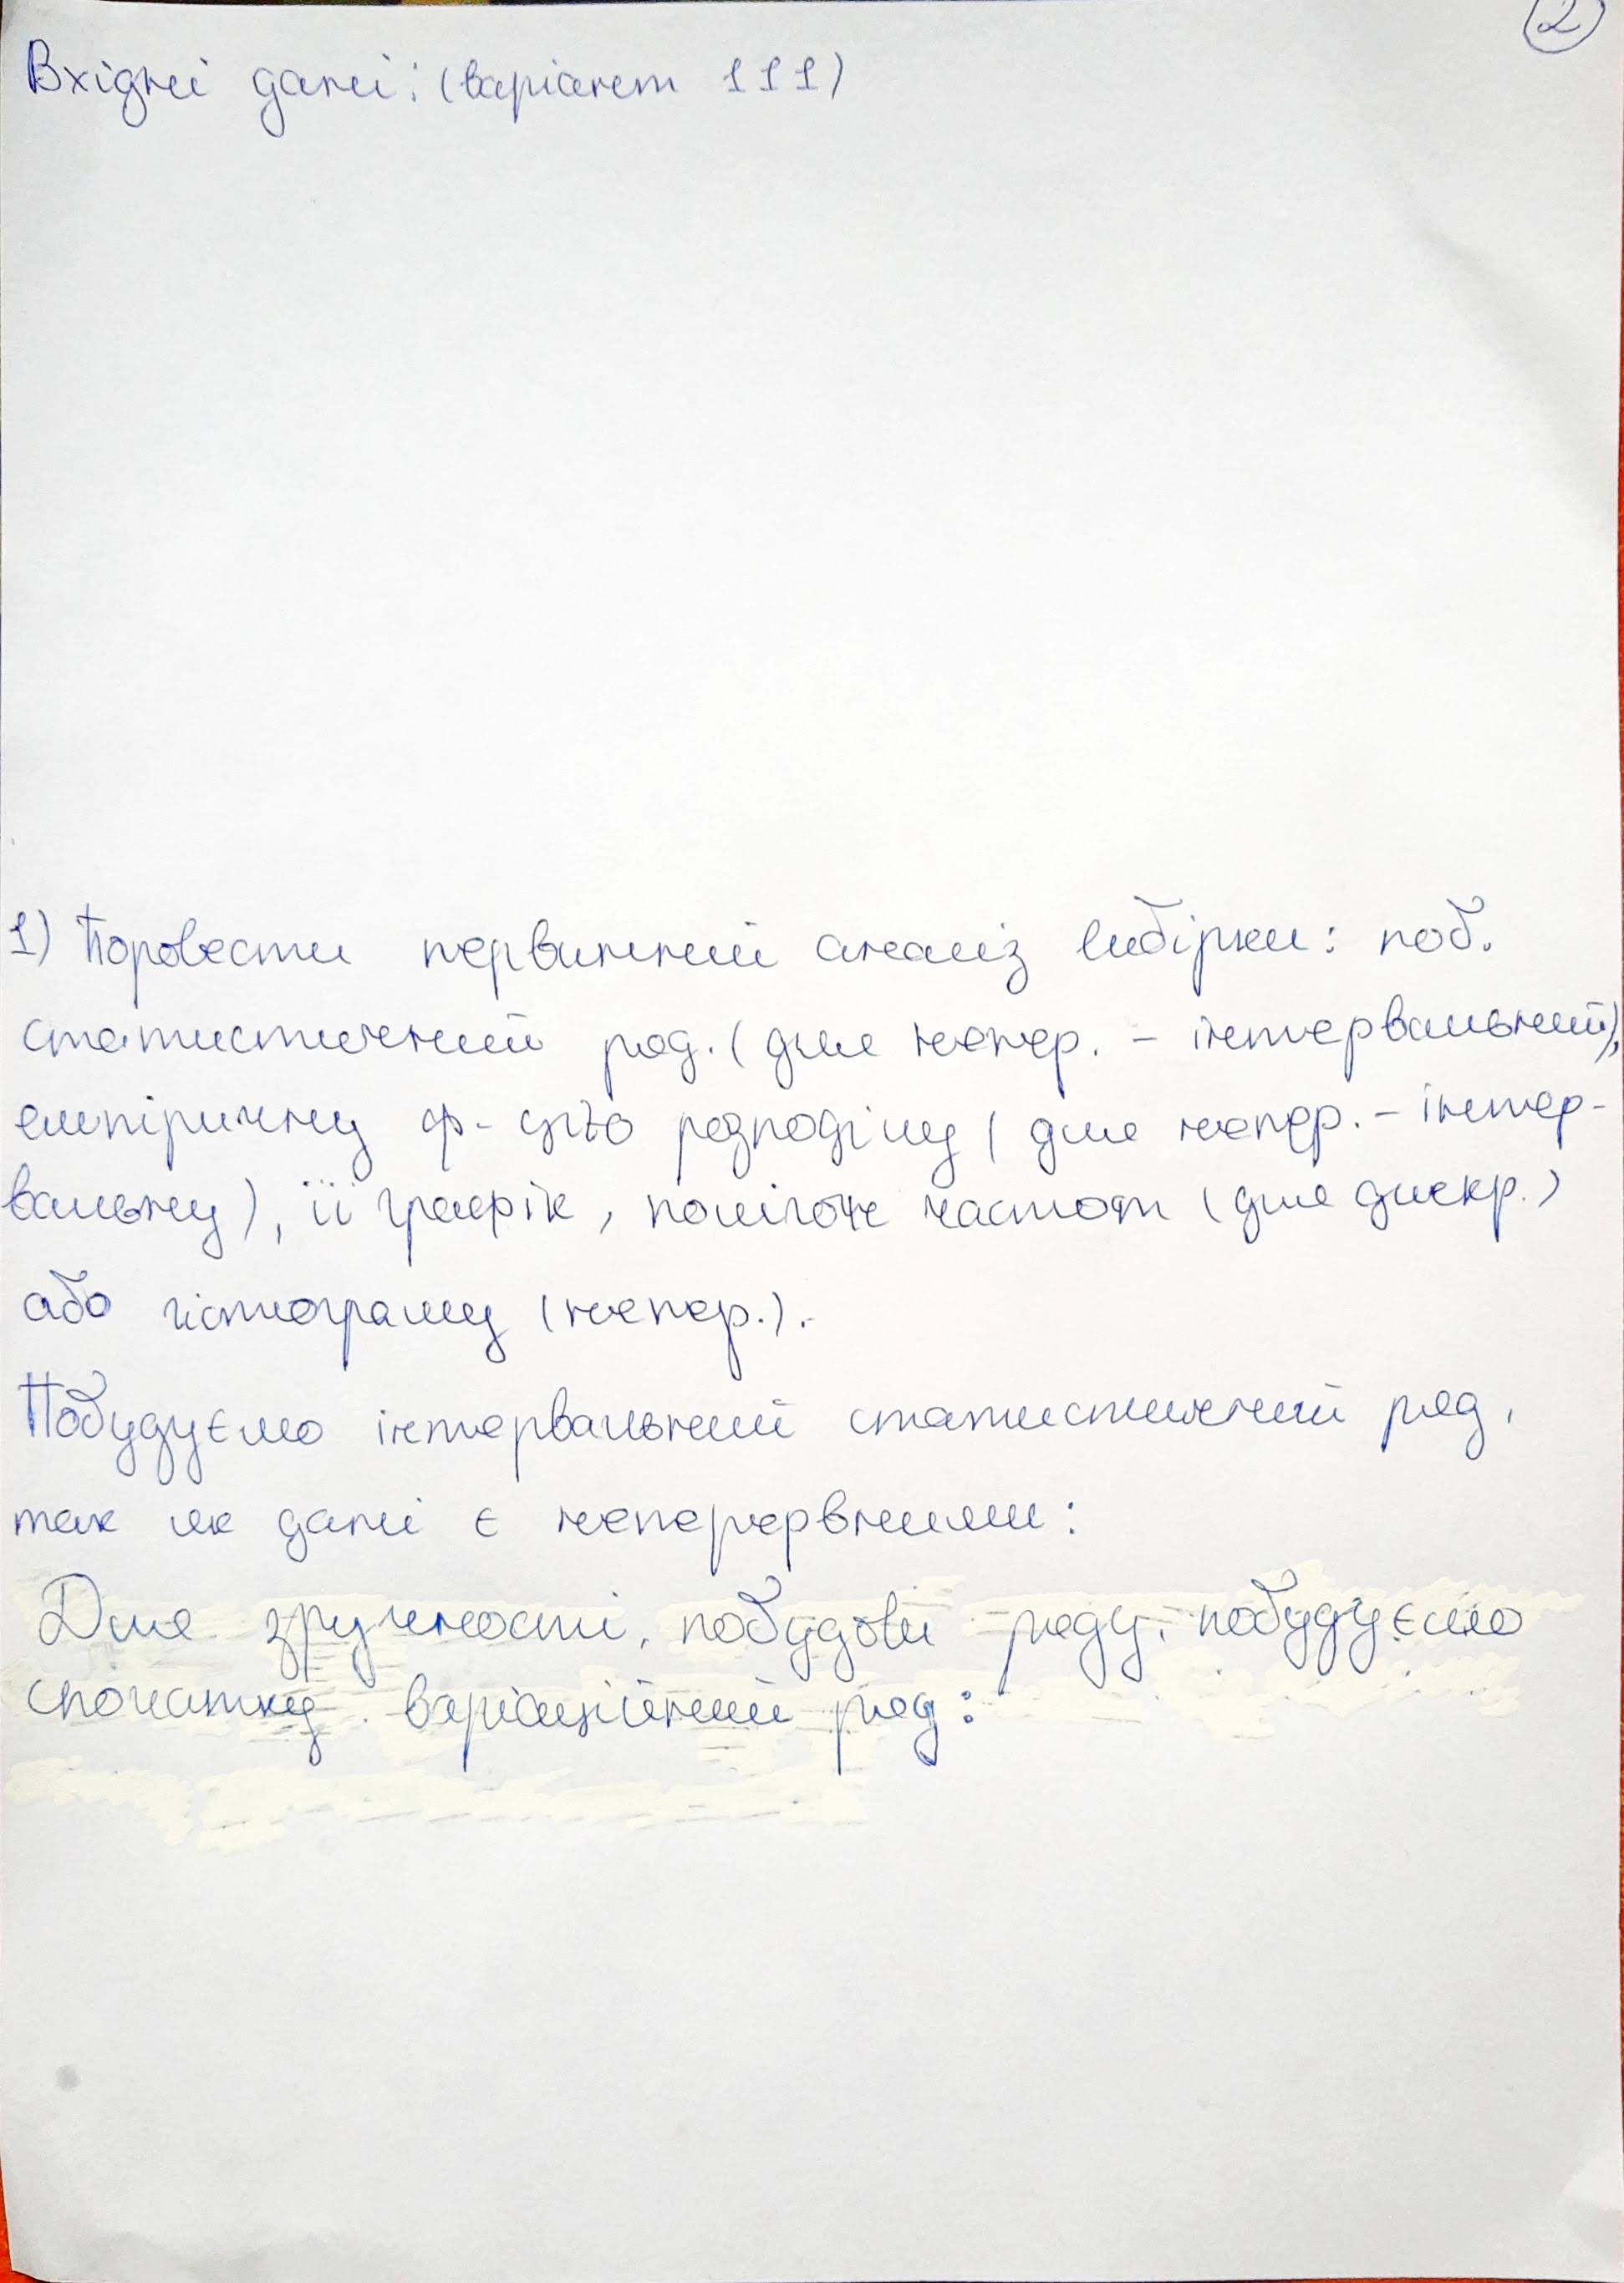 2
Вхідні дані: (варіант 111)
1) Поровести первинний аналіз вибірки: поб.
статистичний ряд. (для непер. - інтервальний),
емпіричну ф-цію розподілу (для непер. - інтер-
вальну), її графік, полігон частот (для дискр.)
або гістограму (непер.).
Побудуємо інтервальний статистичний ряд,
так як дані є неперервними:
Для зручності, побудови ряду, побудуємо
спочатку варіаційний ряд: